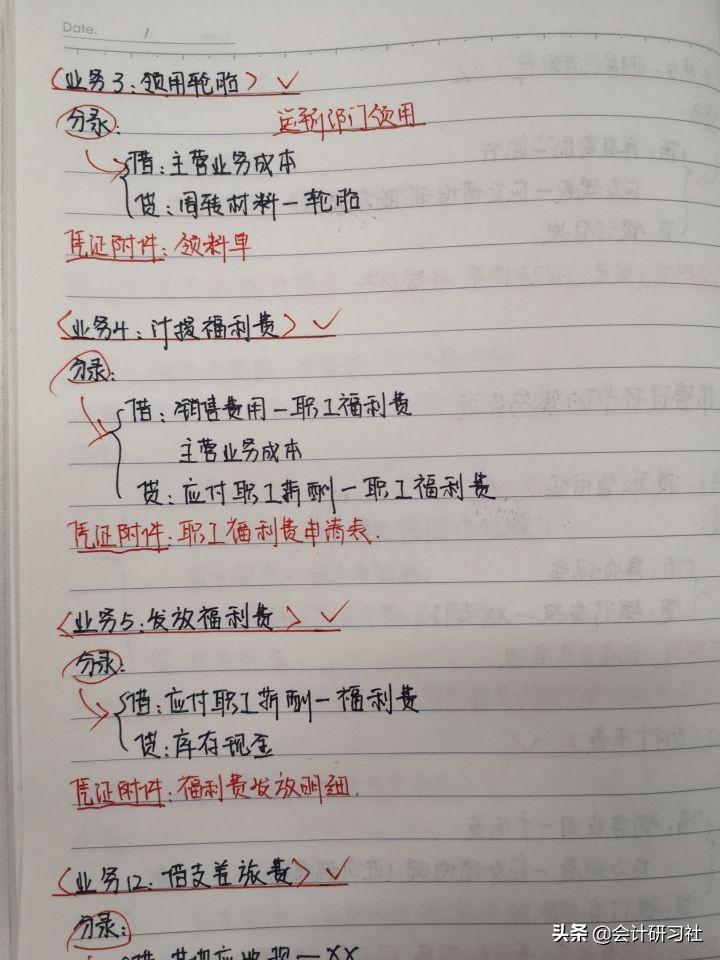 Date. /
〈业务3：领用轮胎〉✓
分录： 运输部门领用
借：主营业务成本
贷：周转材料一轮胎
凭证附件：领料单
〈业务4：计提福利费〉✓
分录：
借：销售费用一职工福利费
主营业务成本
贷：应付职工薪酬一职工福利费
凭证附件：职工福利费申请表.
〈业务5：发放福利费〉✓
分录：
借：应付职工薪酬一福利费
贷：库存现金
凭证附件：福利费发放明细.
〈业务12：借支差旅费〉✓
分录：
借：其他应收款一XX
头条 @会计研习社